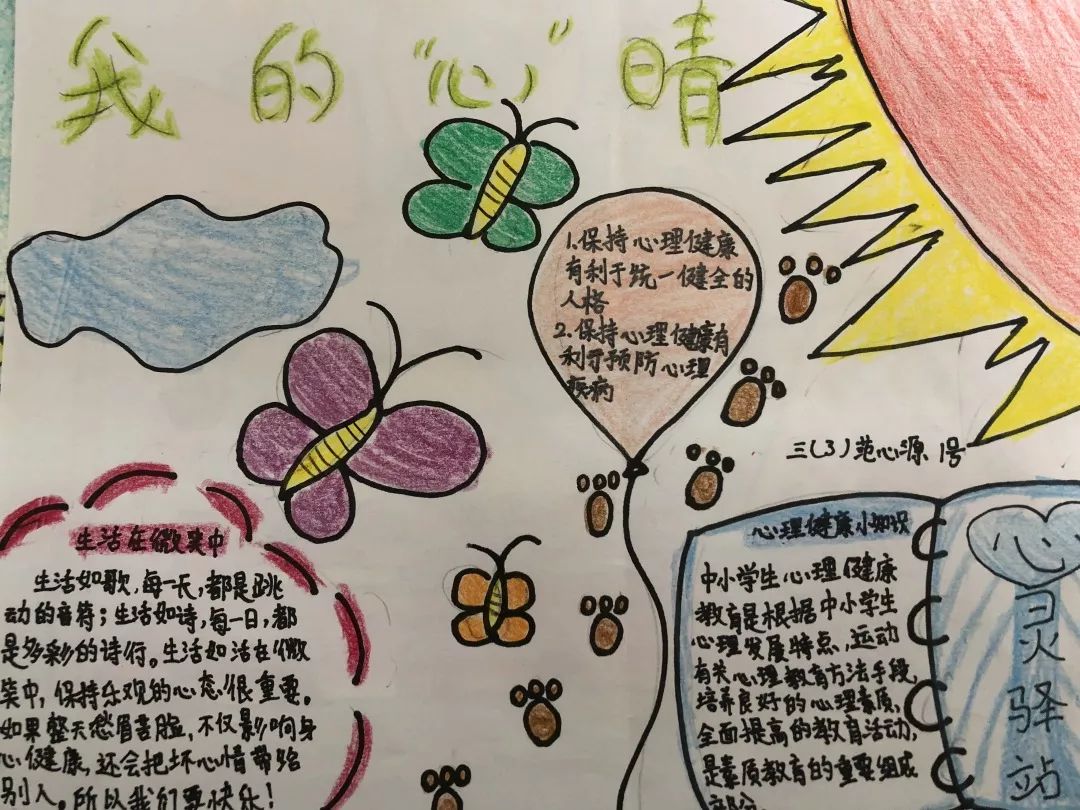 我的“心”晴
1.保持心理健康
有利于统一健全的
人格
2.保持心理健康有
利于预防心理
疾病
三(3)范心源 1号
生活在微笑中
生活如歌,每一天,都是跳
动的音符;生活如诗,每一日,都
是多彩的诗行。生活如活在微
笑中,保持乐观的心态很重要。
如果整天愁眉苦脸,不仅影响身
心健康,还会把坏心情带给
别人。所以我们要快乐!
心理健康小知识
中小学生心理健康
教育是根据中小学生
心理发展特点,运动
有关心理教育方法手段,
培养良好的心理素质,
全面提高的教育活动,
是素质教育的重要组成
部分
心
灵
驿
站